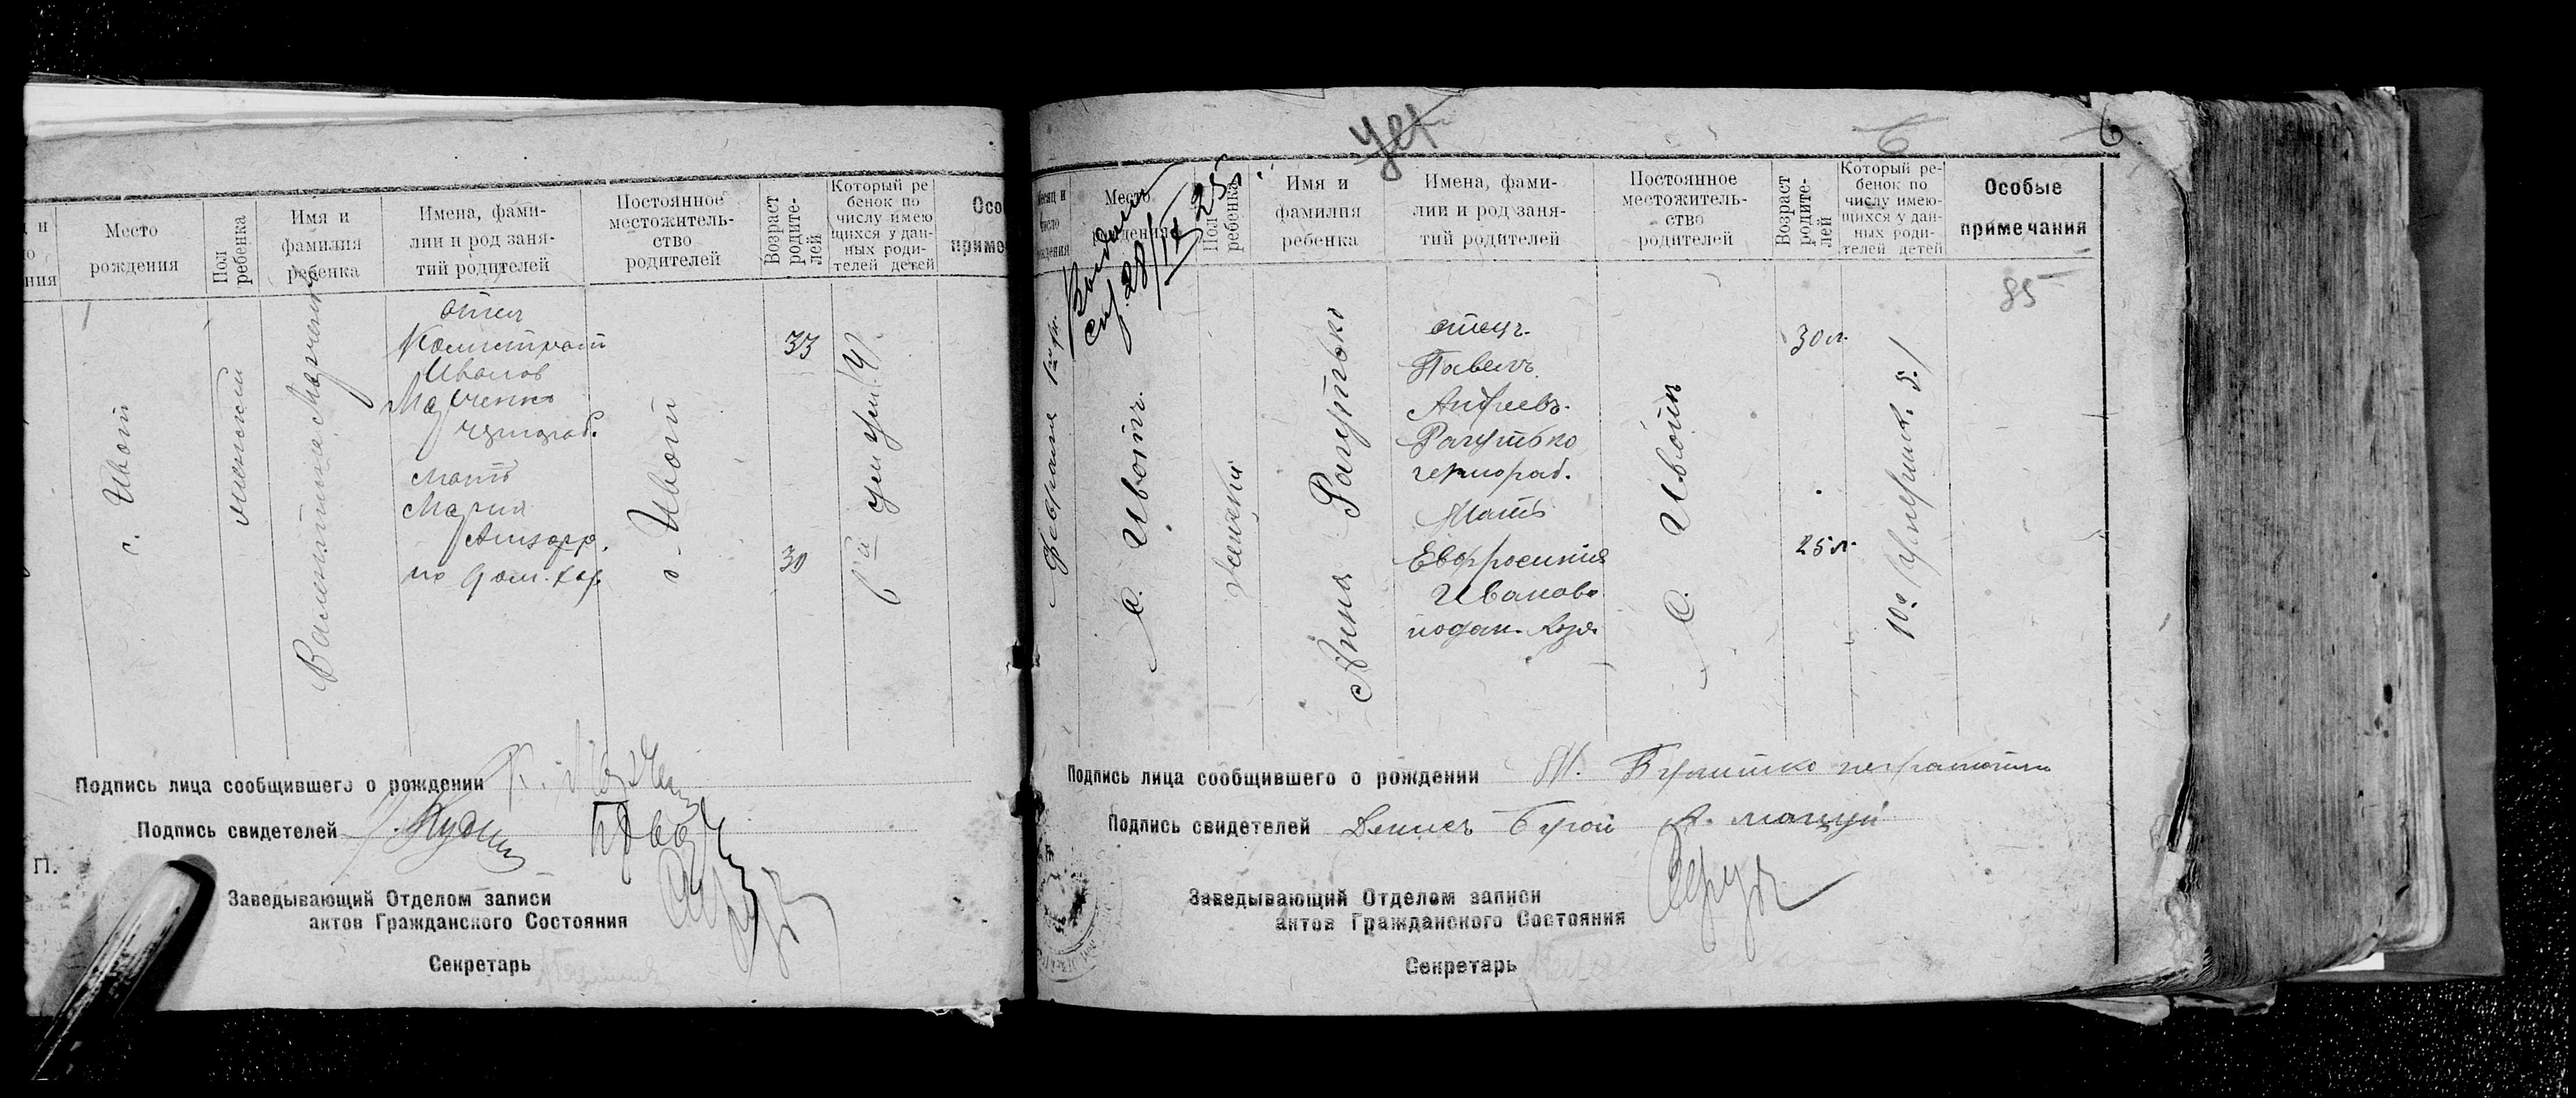 Место
рождения
Пол
ребенка
Имя и
фамилия
ребенка
Имена, фами-
лии и род заня-
тий родителей
Постоянное
местожитель-
ство
родителей
Возраст
родите-
лей
Который ре
бенок по
числу имею
щихся у дан-
ных роди-
телей детей
Осо
приме
с. Ивот
женский
Валентина Марченко
отец
Калистрат
Иванов
Марченко
чернораб.
мать
Мария
по дом. хоз.
с. Ивот
33
30
Подпись лица сообщившего о рождении
Подпись свидетелей
П.
Заведывающий Отделом записи
актов Гражданского Состояния
Секретарь
6
Месяц и
число
рождения
Место
рождения
Пол
ребенка
Имя и
фамилия
ребенка
Имена, фами-
лии и род заня-
тий родителей
Постоянное
местожитель-
ство
родителей
Возраст
родите-
лей
Который ре-
бенок по
числу имею-
щихся у дан-
ных роди-
телей детей
Особые
примечания
28/IX 25
85
Февраля 1го
с. Ивот
женский
Анна Рагутько
отец
Павел
Андреев
Рагутько
чернораб.
Мать
Евфросиния
Иванова
по дом. хоз.
с. Ивот
30 л.
25 л.
Подпись лица сообщившего о рождении
Подпись свидетелей Денис Бурой
Заведывающий Отделом записи
актов Гражданского Состояния
Секретарь